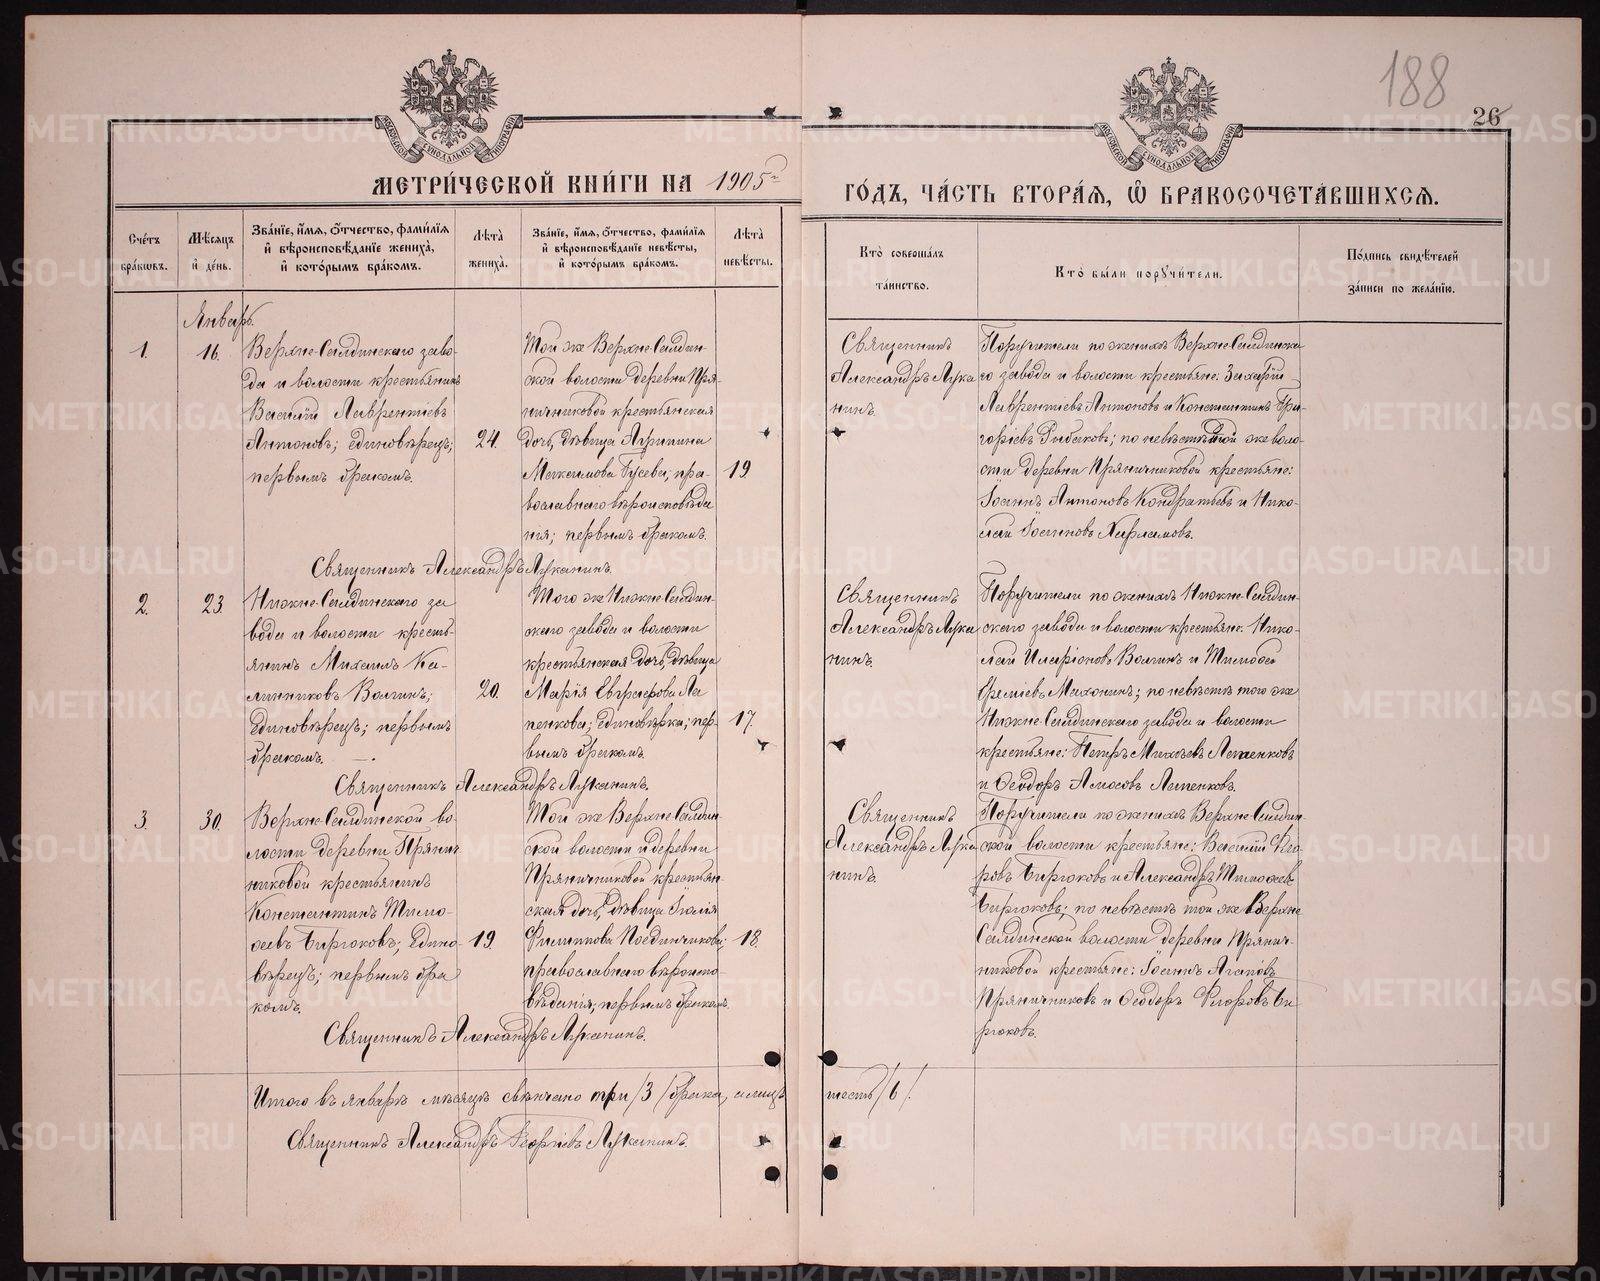 188
26
МЕТРИ́ЧЕСКОЙ КНИ́ГИ НА 1905 г.
ГО́ДЪ, ЧА́СТЬ ВТОРА́Я, Ѽ БРАКОСОЧЕТА́ВШИХСЯ.
Сче́тъ бра́ковъ.
Мѣ́сяцъ и҆ де́нь.
Зва́нїе, и҆́мя, ѻ҆́тчество, фамѝлїя
и҆ вѣроисповѣ́данїе жениха̀,
и҆ кото́рымъ бра́комъ.
Лѣ́та жениха̀.
Зва́нїе, и҆́мя, ѻ҆́тчество, фамѝлїя
и҆ вѣроисповѣ́данїе невѣ́сты,
и҆ кото́рымъ бра́комъ.
Лѣ́та невѣ́сты.
Кто̀ соверша́лъ
та́инство.
Кто̀ бы́ли порꙋчи́тели.
По́дпись свидѣ́телей
за́писи по жела́нїю.
Январь.
1.
16.
Верхне-Салдинскаго заво-
да и волости крестьянинъ
Василій Лаврентіевъ
Антоновъ; единовѣрецъ;
первымъ бракомъ.
24.
Той же Верхне-Салдин-
ской волости деревни Пря-
ничниковой крестьянская
дочь, дѣвица Агрипина
Максимова Гусева; пра-
вославнаго вѣроисповѣда
нія; первымъ бракомъ.
19
Священникъ
Александръ Лука
нинъ.
Поручители по женихѣ Верхне-Салдинска
го завода и волости крестьяне: Захарій
Лаврентіевъ Антоновъ и Константинъ Гри-
горіевъ Рыбаковъ; по невѣстѣ той же воло-
сти деревни Пряничниковой крестьяне:
Іоаннъ Антоновъ Кондратьевъ и Нико-
лай Іоанновъ Харламовъ.
Священникъ Александръ Луканинъ.
2.
23
Нижне-Салдинскаго за
вода и волости кресть-
янинъ Михаилъ Ка-
линниковъ Волгинъ;
Единовѣрецъ; первымъ
бракомъ. —
20.
Того же Нижне-Салдин-
скаго завода и волости
крестьянская дочь, дѣвица
Марія Евграфова Ла
пенкова; единовѣрка; пер-
вымъ бракомъ.
17.
Священникъ
Александръ Лука
нинъ.
Поручители по женихѣ Нижне-Салдин-
скаго завода и волости крестьяне: Нико-
лай Иларіоновъ Волгинъ и Тимофей
Еремѣевъ Махонинъ; по невѣстѣ того же
Нижне-Салдинскаго завода и волости
крестьяне: Петръ Михѣевъ Лапенковъ
и Ѳеодоръ Амосовъ Лапенковъ.
Священникъ Александръ Луканинъ.
3.
30.
Верхне-Салдинской во-
лости деревни Прянич
никовой крестьянинъ
Константинъ Тимо-
ѳеевъ Бирюковъ; Едино-
вѣрецъ; первымъ бра
комъ.
19.
Той же Верхне-Салдин-
ской волости и деревни
Пряничниковой крестьян-
ская дочь, дѣвица Іюлія
Филиппова Поединчикова;
православнаго вѣроиспо
вѣданія; первымъ бракомъ.
18.
Священникъ
Александръ Лука
нинъ.
Поручители по женихѣ Верхне-Салдин-
ской волости крестьяне: Василій Его
ровъ Бирюковъ и Александръ Тимоѳеевъ
Бирюковъ; по невѣстѣ той же Верхне
Салдинской волости деревни Прянич-
никовой крестьяне: Іоаннъ Агаповъ
Пряничниковъ и Ѳеодоръ Флоровъ Би
рюковъ.
Священникъ Александръ Луканинъ.
Итого въ январѣ мѣсяцѣ свѣнчано три /3/ брака, а лицъ шесть /6/.
Священникъ Александръ Георгіевъ Луканинъ.
METRIKI.GASO-URAL.RU